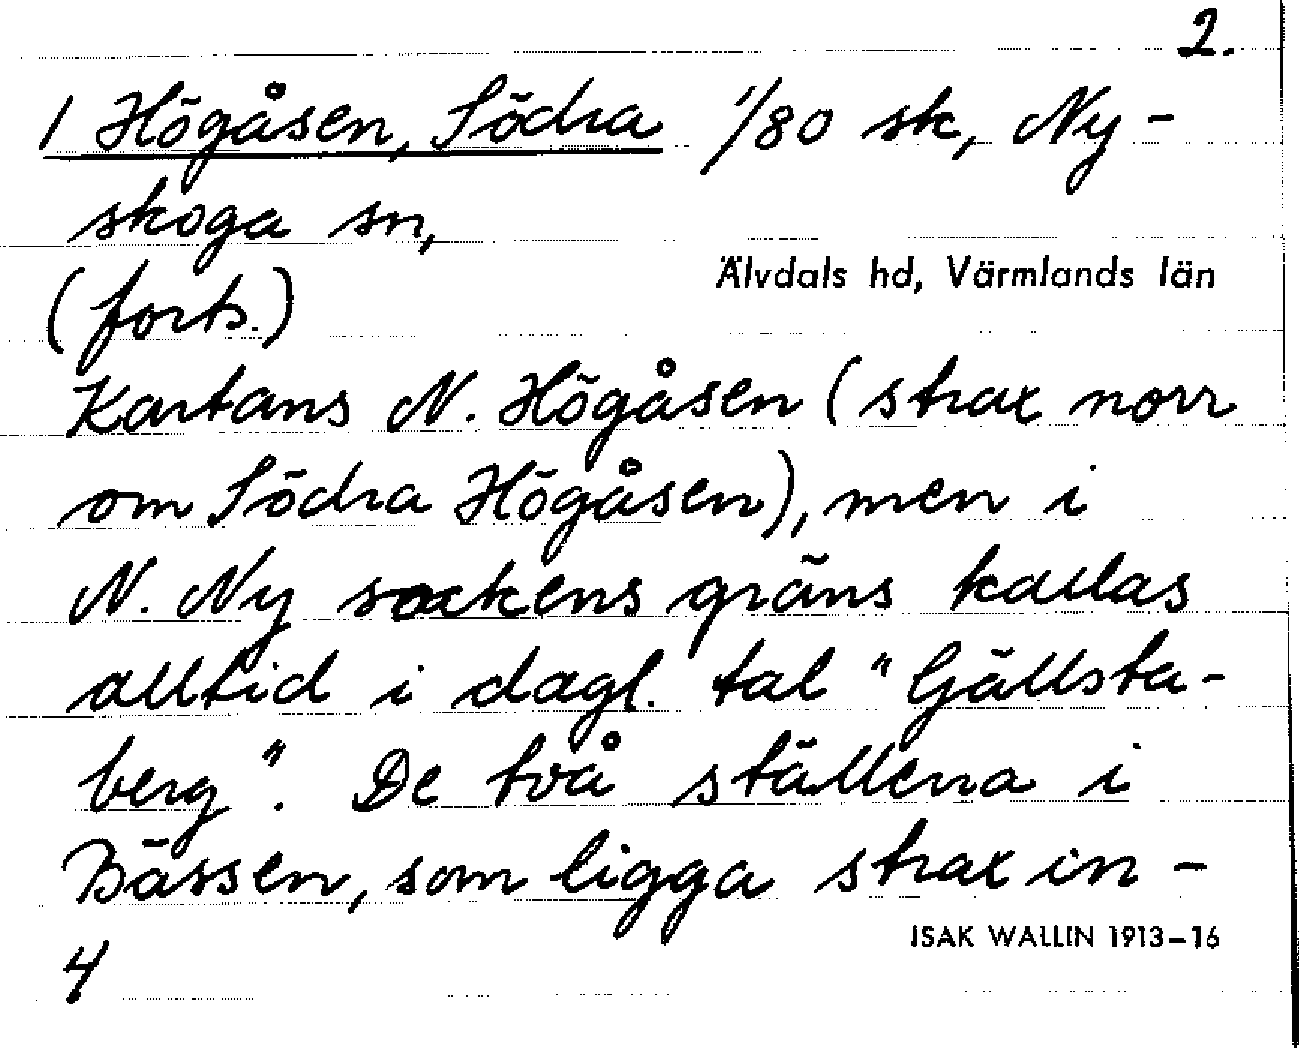 2.
1 Högåsen, Södra 1/80 sk, Ny-
skoga sn,
Älvdals hd, Värmlands län
(forts.)
Kartans N. Högåsen (strax norr
om Södra Högåsen), men i
N. Ny sockens gräns kallas
alltid i dagl. tal "Gällsta-
berg". De två ställena i
Bässen, som ligga strax in-
ISAK WALLIN 1913-16
4